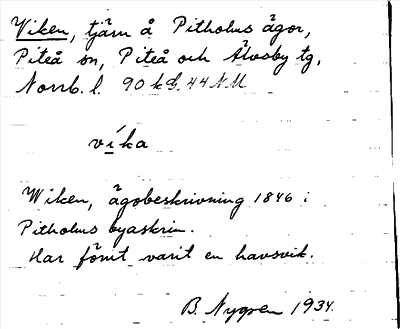 Viken, tjärn å Pitholms ägor,
Piteå sn, Piteå och Älvsby tg,
Norrb. l. 90 kd. 44 N.M.
víka
Wiken, ägobeskrivning 1846 i
Pitholms byaskrin.
Har förut varit en havsvik.
B. Nygren 1934.